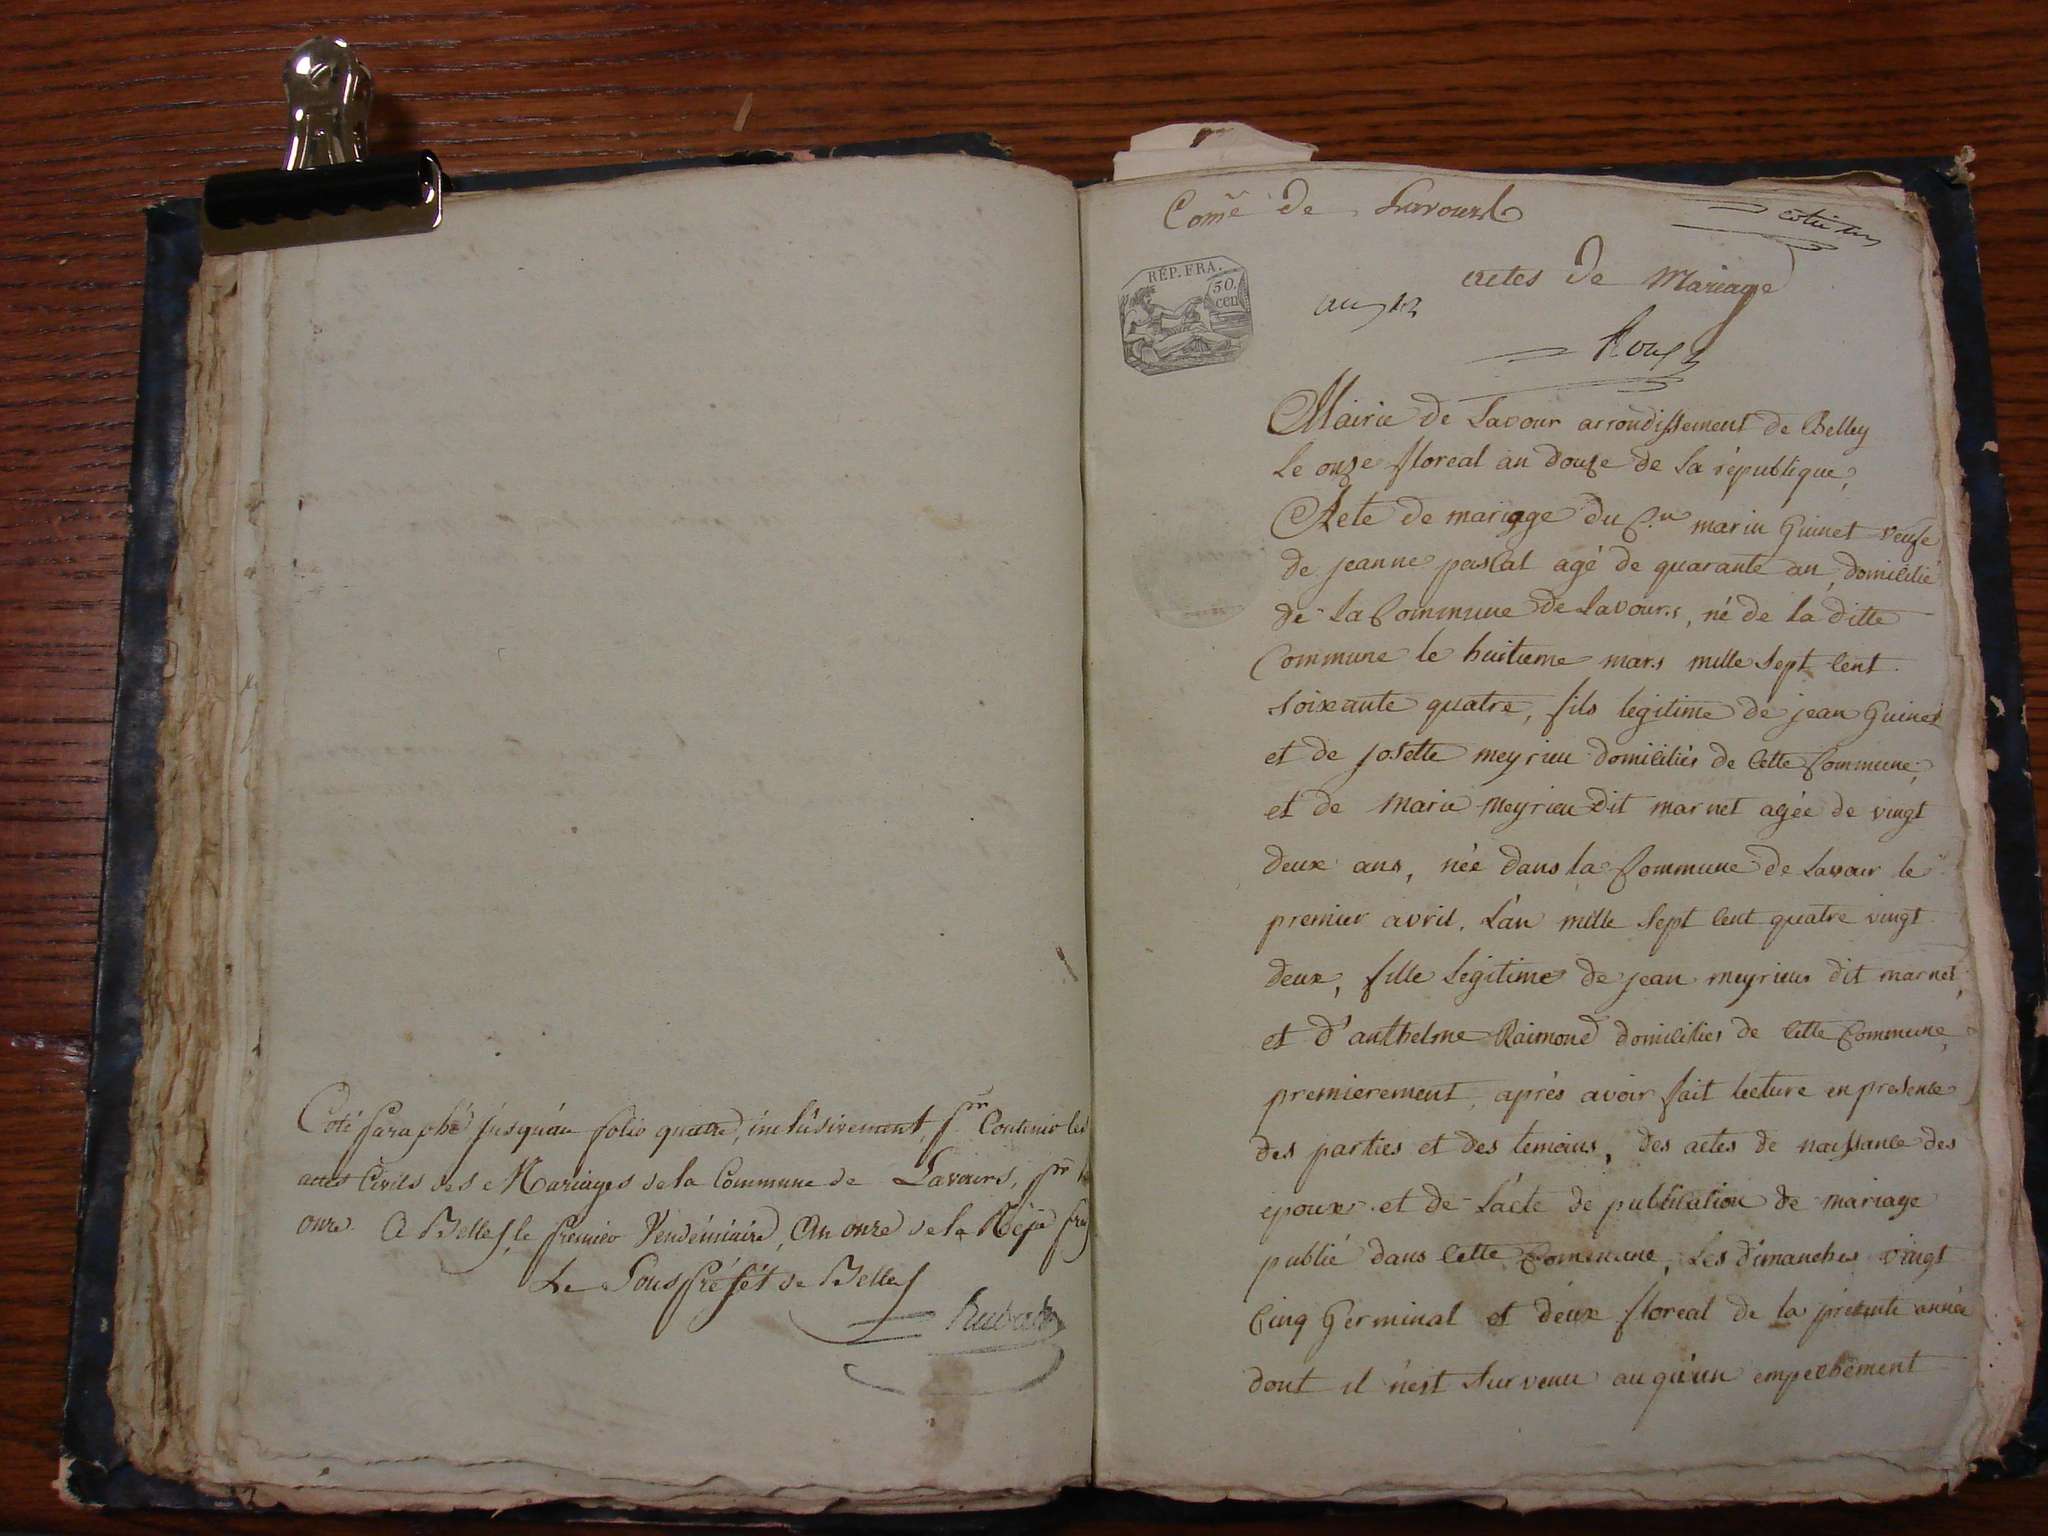 Coté paraphé jusqu'au folio quatre, inclusivement, pr Contenir les
actes Civils des Mariages de la Commune de Lavours, pr
onze. A Belley, le premier Vendémiaire, An onze de la Rép.
Le Sous Préfét de Belley
Come de Lavours
RÉP. FRA.
50.
cen
actes de Mariage
an 12
Mairie de Lavour arrondissement de Belley
Le onze floreal an douze de la république,
Acte de mariage du C.en marin Guinet veufe
de jeanne pascal agé de quarante an, domicilié
de La Commune de Lavours, né de la ditte
Commune le huitieme mars mille sept cent
soixante quatre, fils legitime de jean Guinet
et de josette meyrieu domiciliés de cette Commune,
et de marie meyrieu dit marnet agée de vingt
deux ans, née dans la Commune de Lavour le
premier avril. L'an mille sept cent quatre vingt
deux, fille légitime de jean meyrieu dit marnet,
et d'anthelme Raimond domiciliés de cette Commune,
premierement, après avoir fait lecture en presence
des parties et des temoins, des actes de naissance des
epoux et de L'acte de publication de mariage
publié dans cette Commune, Les dimanches vingt
Cinq Germinal et deux floreal de la présente année
dont il n'est survenu auqu'un empechement